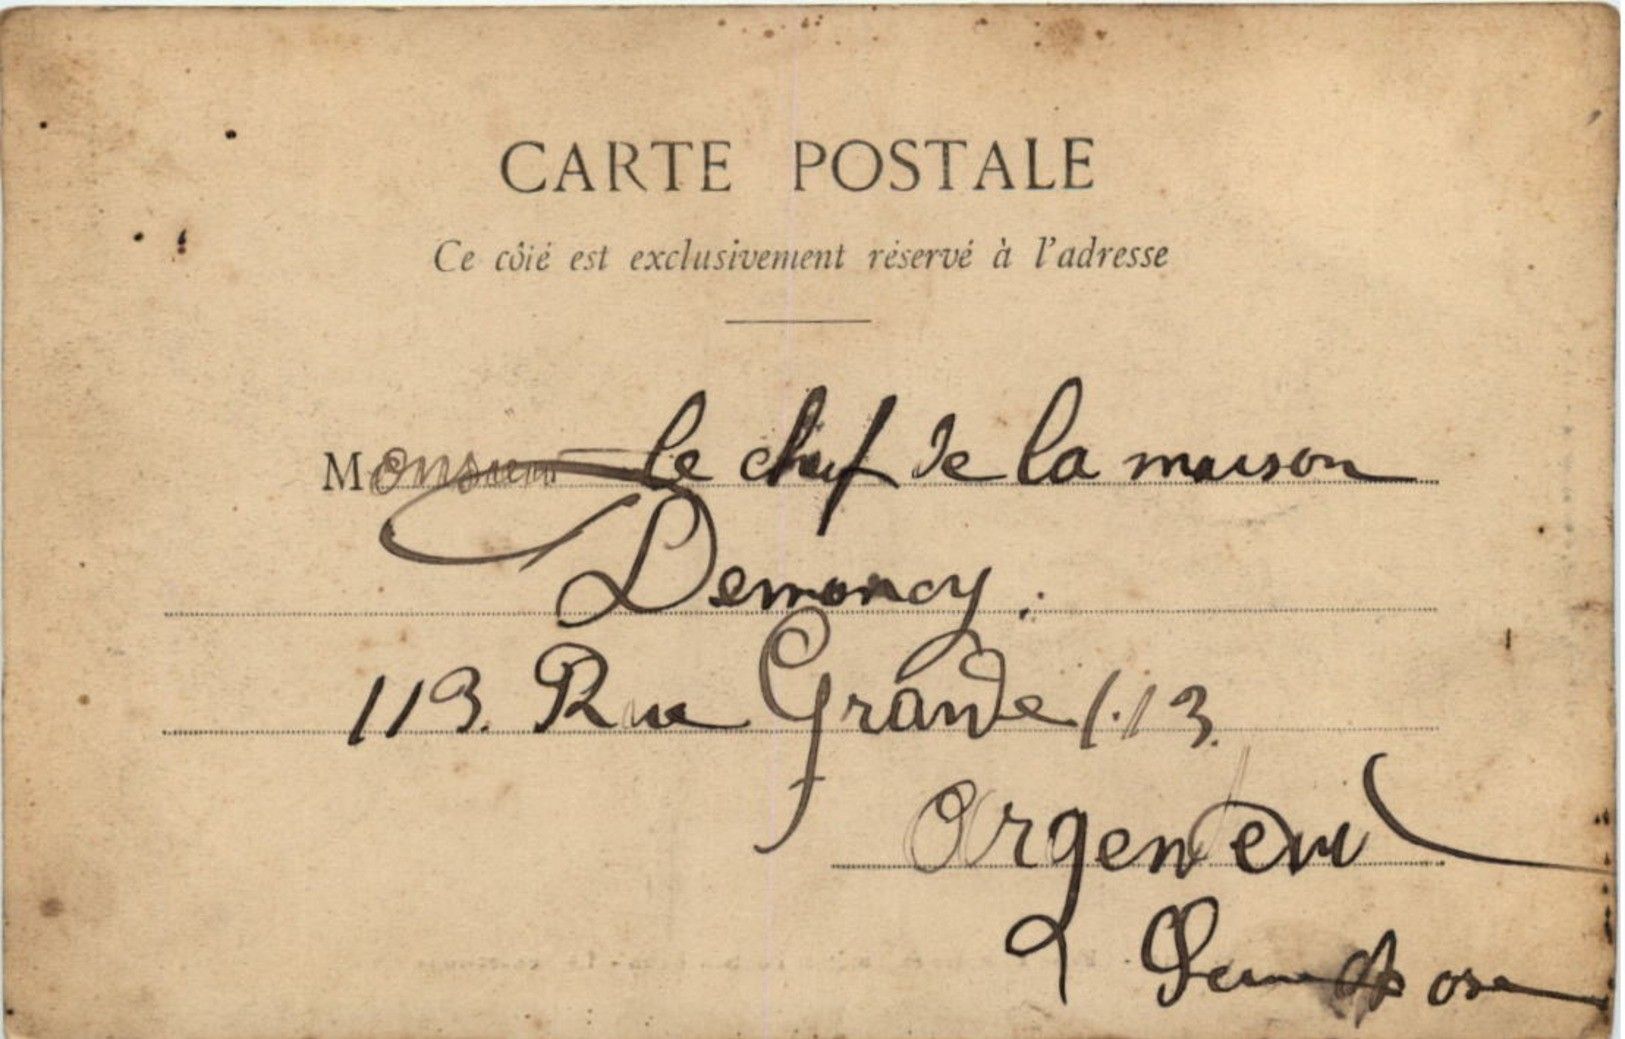 CARTE POSTALE
Ce côté est exclusivement réservé à l'adresse
Monsieur le chef de la maison
Demoncy.
113. Rue Grande 113.
Argenteuil
Seine & Oise